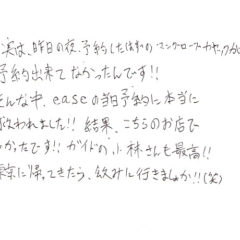 実は、昨日の夜、予約したはずのマングローブカヤックが
予約出来てなかったんです!!
そんな中、easeの当日予約に本当に
救われました!! 結果、こちらのお店で
かったです!! ガイドの小林さんも最高!!
東京に帰ってきたら、飲みに行きましょか!!(笑)